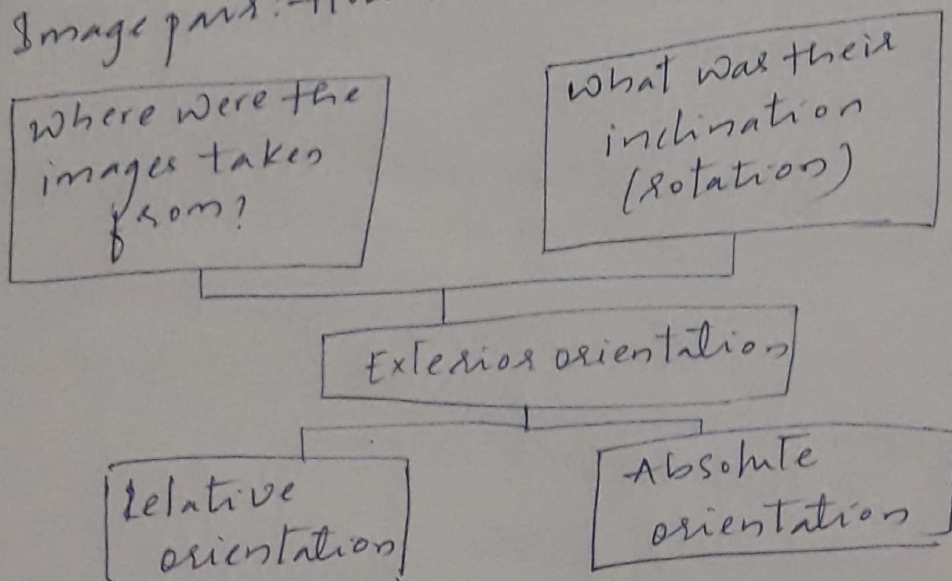 Image pair:
Where were the
images taken
from?
What was their
inclination
(rotation)
Exterior orientation
Relative
orientation
Absolute
orientation